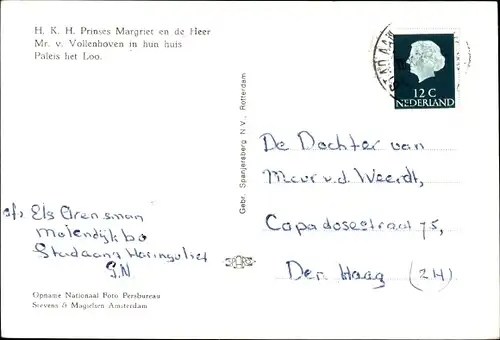 H. K. H. Prinses Margriet en de Heer
Mr. v. Vollenhoven in hun huis
Paleis het Loo.
12 C
NEDERLAND
Gebr. Spanjersberg N.V., Rotterdam
De Dochter van
Mevr v.d. Weerdt,
Capadosestraat 75,
Den Haag (ZH)
afz Els Arensman
Molendijk 60
Stad aan 't Haringvliet
Opname Nationaal Foto Persbureau
Stevens & Magielsen Amsterdam